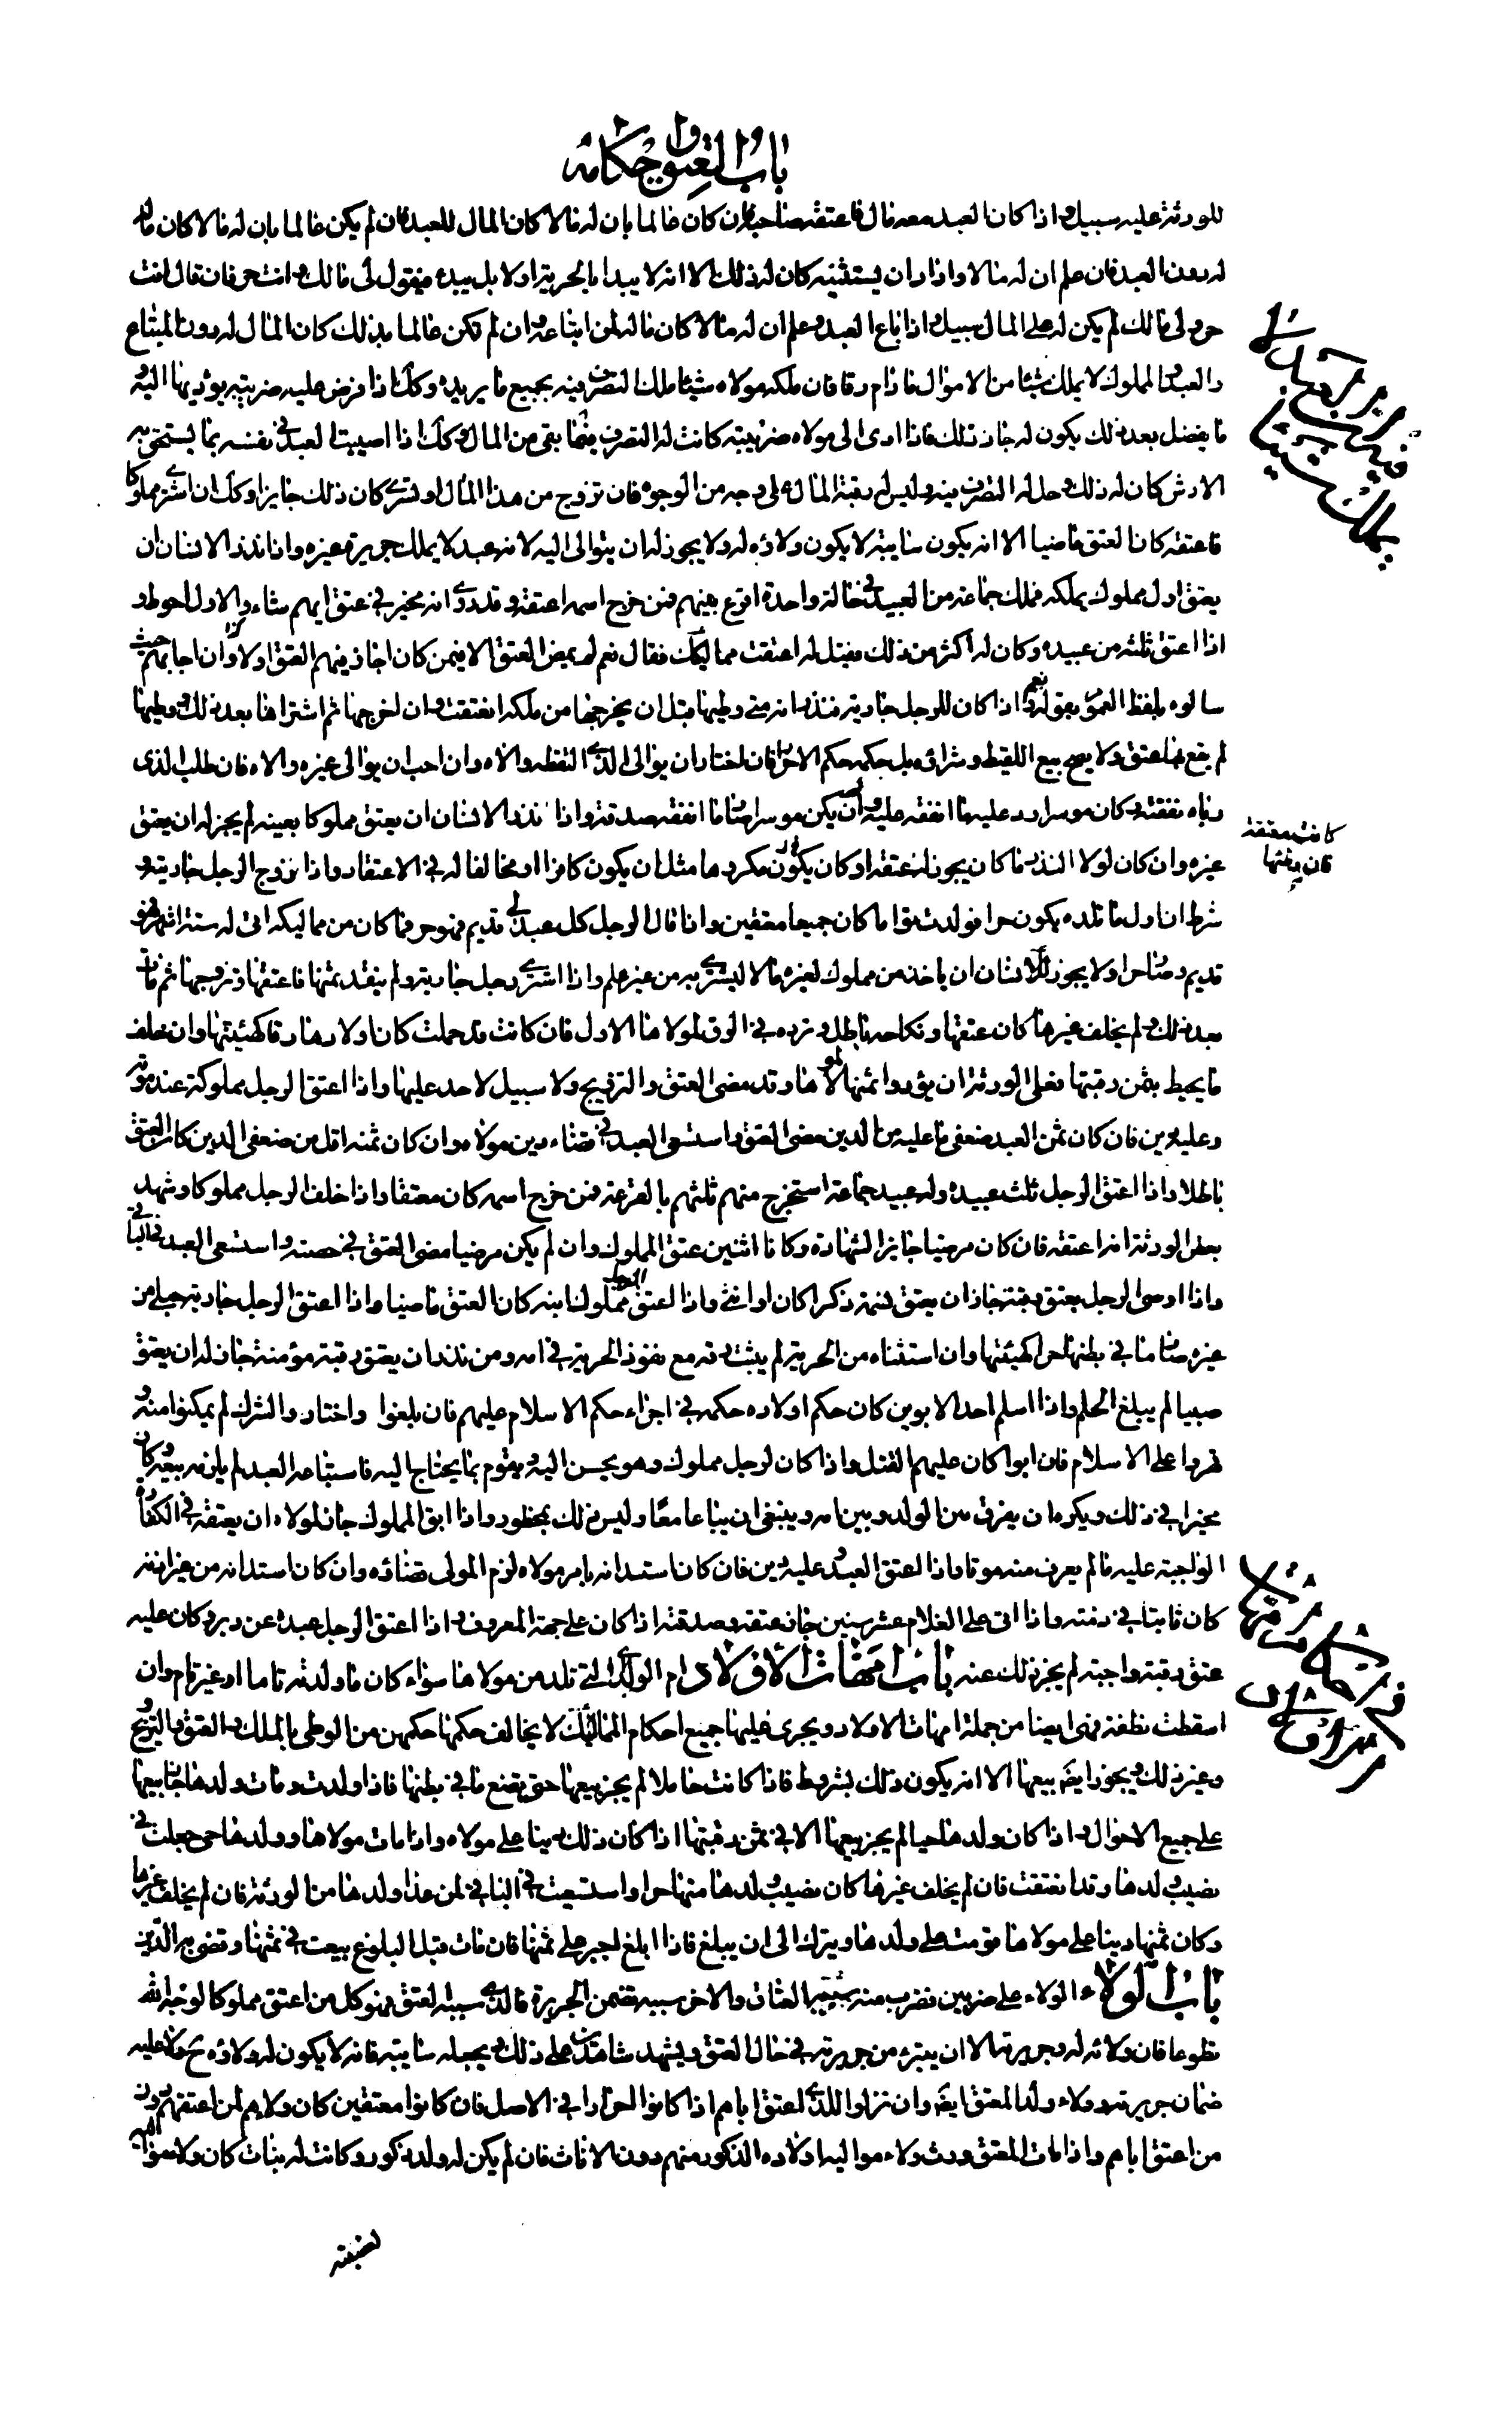 باب العتق واحكامه
للورثة عليه سبيل واذا كان العبد معه مال فاعتقه صاحبه فان كان عالما بان له مالا كان المال للعبد وان لم يكن عالما بان له مالا كان ماله
له دون العبد فان علم ان له مالا واذا اراد ان يستثنيه كان له ذلك الا انه لا يبدا بالحرية اولا بل يبدء فيقول لى مالك وانت حر فان قال انت
حر ولى مالك لم يكن له على المال سبيل واذا باع العبد وعلم ان له مالا كان ماله لمن ابتاعه وان لم تكن عالما بذلك كان المال له دون المبتاع
والعبد المملوك لا يملك شيئا من الاموال ما دام رقا فان ملكه مولاه شيئا ملك التصرف فيه بجميع ما يريده وكك اذا فرض عليه ضريبة يؤديها اليه و
ما يفضل بعد ذلك يكون له جاز ذلك فاذا ادى الى مولاه ضريبته كانت له التصرف فيما بقى من المال وكك اذا اصيب العبد فى نفسه بما يستحق به
الارش كان له ذلك وحل له التصرف فيه وليس له رقبة المال على وجه من الوجوه فان تزوج من هذا المال او تسرى كان ذلك جايزا وكك ان اشترى مملوكا
فاعتقه كان العتق ماضيا الا انه يكون سايبة لا يكون ولاؤه له ولا يجوز له ان يتوالى اليه لانه عبد لا يملك جريرة غيره واذا نذر الانسان ان
يعتق اول مملوك يملكه فملك جماعة من العبيد فى حالة واحدة اقرع بينهم فمن خرج اسمه اعتقه وقد روى انه مخير فى عتق ايهم شاء والاول احوط و
اذا اعتق ثلثة من عبيده وكان له اكثر من ذلك فقيل له اعتقت مماليكك فقال نعم لم يمض العتق الا فيمن كان اجاز فيهم العتق اولا وان اجابهم حيث
سالوه بلفظ العموم بقوله نعم اذا كان للرجل جارية فنذر انه متى وطيها قبل ان يخرجها من ملكه انعتقت وان اخرجها ثم اشتراها بعد ذلك ووطيها
لم يقع بها عتق ولا يصح بيع اللقيط وشراؤه بل حكمه حكم الاحرار فان اختار ان يوالى الذى التقطه والاه وان احب ان يوالى غيره والاه فان طلب الذى
رباه نفقته وكان موسرا رد عليه ما انفقه عليه وان لم يكن موسرا صار ما انفقه صدقة واذا نذر الانسان ان يعتق مملوكا بعينه لم يجز له ان يعتق
غيره وان كان لولا النذر ما كان يجوز له عتقه او كان يكون مكروها مثل ان يكون كافرا او مخالفا له فى الاعتقاد واذا تزوج الرجل جارية و
شرط ان اول ما تلده يكون حرا فولدت تواما كان جميعا معتقين واذا قال الرجل كل عبد لى قديم فهو حر فما كان من مماليكه اتى له ستة اشهر فهو
قديم وصار حرا ولا يجوز للانسان ان ياخذ من مملوك لغيره مالا ليشتريه به من غير علم واذا اشترى رجل جارية ولم ينقد ثمنها فاعتقها وتزوجها ثم مات
بعد ذلك ولم يخلف غيرها كان عتقها ونكاحه باطلا وترده فى الرق لمولاها الاول فان كانت قد حملت كان اولادها رقا كهيئتها وان خلف
ما يحيط بثمن رقبتها فعلى الورثة ان يؤدوا ثمنها لمولاها وقد مضى العتق والتزويج ولا سبيل لاحد عليها واذا اعتق الرجل مملوكه عند موته
وعليه دين فان كان ثمن العبد ضعفى ما عليه من الدين مضى العتق واستسعى العبد فى قضاء دين مولاه وان كان ثمنه اقل من ضعفى الدين كان العتق
باطلا واذا اعتق الرجل ثلث عبيده وله عبيد جماعة استخرج منهم ثلثهم بالقرعة فمن خرج اسمه كان معتقا واذا خلف الرجل مملوكا وشهد
بعض الورثة انه اعتقه فان كان مرضيا جايز الشهادة وكانا اثنين عتق المملوك وان لم يكن مرضيا مضى العتق فى حصته واستسعى العبد فى الباقى
واذا اوصى الرجل بعتق رقبة جاز ان يعتق نسمة ذكرا كان او انثى واذا اعتق الرجل مملوك ابنه كان العتق ماضيا واذا اعتق الرجل جارية حبلى من
غيره صار ما فى بطنها حرا كهيئتها وان استثناه من الحرية لم يثبت رقه مع نفوذ الحرية فى امه ومن نذر ان يعتق رقبة مؤمنة جاز له ان يعتق
صبيا لم يبلغ الحلم واذا اسلم احد الابوين كان حكم اولاده حكمه فى اجراء حكم الاسلام عليهم فان بلغوا واختاروا الشرك لم يمكنوا منه و
قهروا على الاسلام فان ابوا كان عليهم القتل واذا كان لرجل مملوك وهو يحسن اليه ويقوم بما يحتاج اليه فاستباعه العبد لم يلزمه بيعه وكان
مخيرا فى ذلك ويكره ان يفرق بين الولد وبين امه وينبغى ان يباعا معا وليس ذلك بمحظور واذا ابق المملوك جاز لمولاه ان يعتقه فى الكفارة
الواجبة عليه مالم يعرف منه موتا واذا اعتق العبد وعليه دين فان كان استدانه بامر مولاه لزم المولى قضاؤه وان كان استدانه من غير اذنه
كان ثابتا فى ذمته واذا اتى على الغلام عشر سنين جاز عتقه وصدقته اذا كان على جهة المعروف واذا اعتق الرجل عبده عن دبر وكان عليه
عتق رقبة واجبة لم يجز ذلك عنه باب امهات الاولاد ام الولد هى التى تلد من مولاها سواء كان ما ولدته تاما او غير تام وان
اسقطت نطفة فهى ايضا من جملة امهات الاولاد ويجرى عليها جميع احكام المماليك لا يخالف حكمها حكمهن من الوطى بالملك والعتق والتزويج و
وغير ذلك ويجوز ايضا بيعها الا انه يكون ذلك بشروط فاذا كانت حاملا لم يجز بيعها حتى تضع ما فى بطنها فاذا ولدت ومات ولدها جاز بيعها
على جميع الاحوال واذا كان ولدها حيا لم يجز بيعها الا فى ثمن رقبتها اذا كان ذلك دينا على مولاه واذا مات مولاها وولدها حى جعلت فى
نصيب ولدها وقد انعتقت فان لم يخلف غيرها كان نصيب ولدها منها حرا واستسعيت فى الباقى لمن عدا ولدها من الورثة فان لم يخلف غيرها
وكان ثمنها دينا على مولاها قومت على ولدها ويترك الى ان يبلغ فاذا بلغ اجبر على ثمنها فان مات قبل البلوغ بيعت فى ثمنها وقضى به الدين
باب الولاء الولاء على ضربين فضرب منه سببه العتاق والاخر سببه تضمن الجريرة فالذى سببه العتق فهو كل من اعتق مملوكا لوجه الله
تطوعا فان ولائه له وجريرته الا ان يتبرء من جريرته فى حال العتق ويشهد شاهدين على ذلك ويجعله سايبة فانه لا يكون له ولاؤه ح ولا عليه
ضمان جريرته وولاء ولد المعتق ايضا وان نزلوا للذى اعتق اباهم اذا كانوا احرارا فى الاصل فان كانوا معتقين كان ولاؤهم لمن اعتقهم دون
من اعتق اباهم واذا مات المعتق ورث ولاء مواليه اولاده الذكور منهم دون الاناث فان لم يكن له ولد ذكور وكانت له بنات كان ولاء مواليه
كانت معتقة
فان وطئها